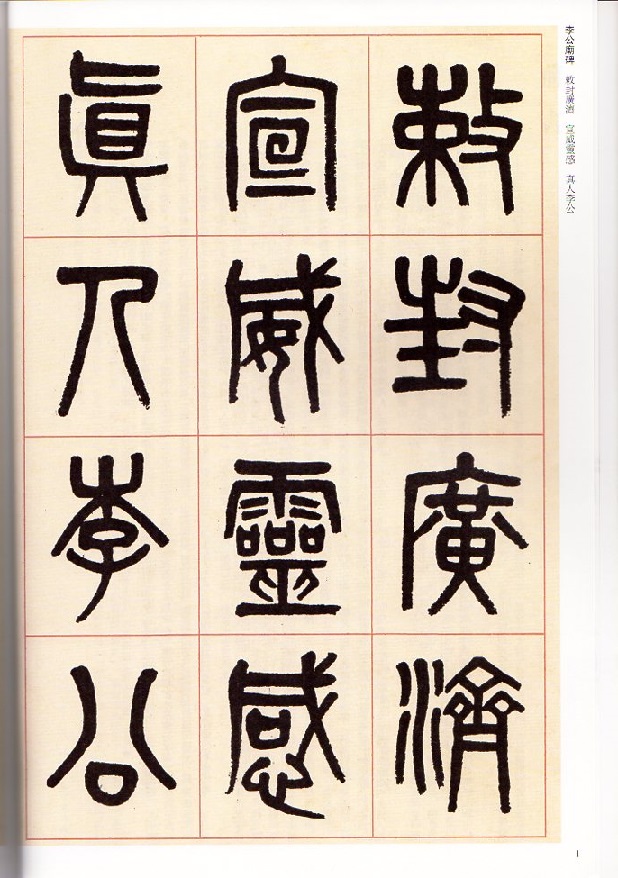 李公廟碑　敕封廣濟　宣威靈感　真人李公
敕封廣濟
宣威靈感
眞人李公
1